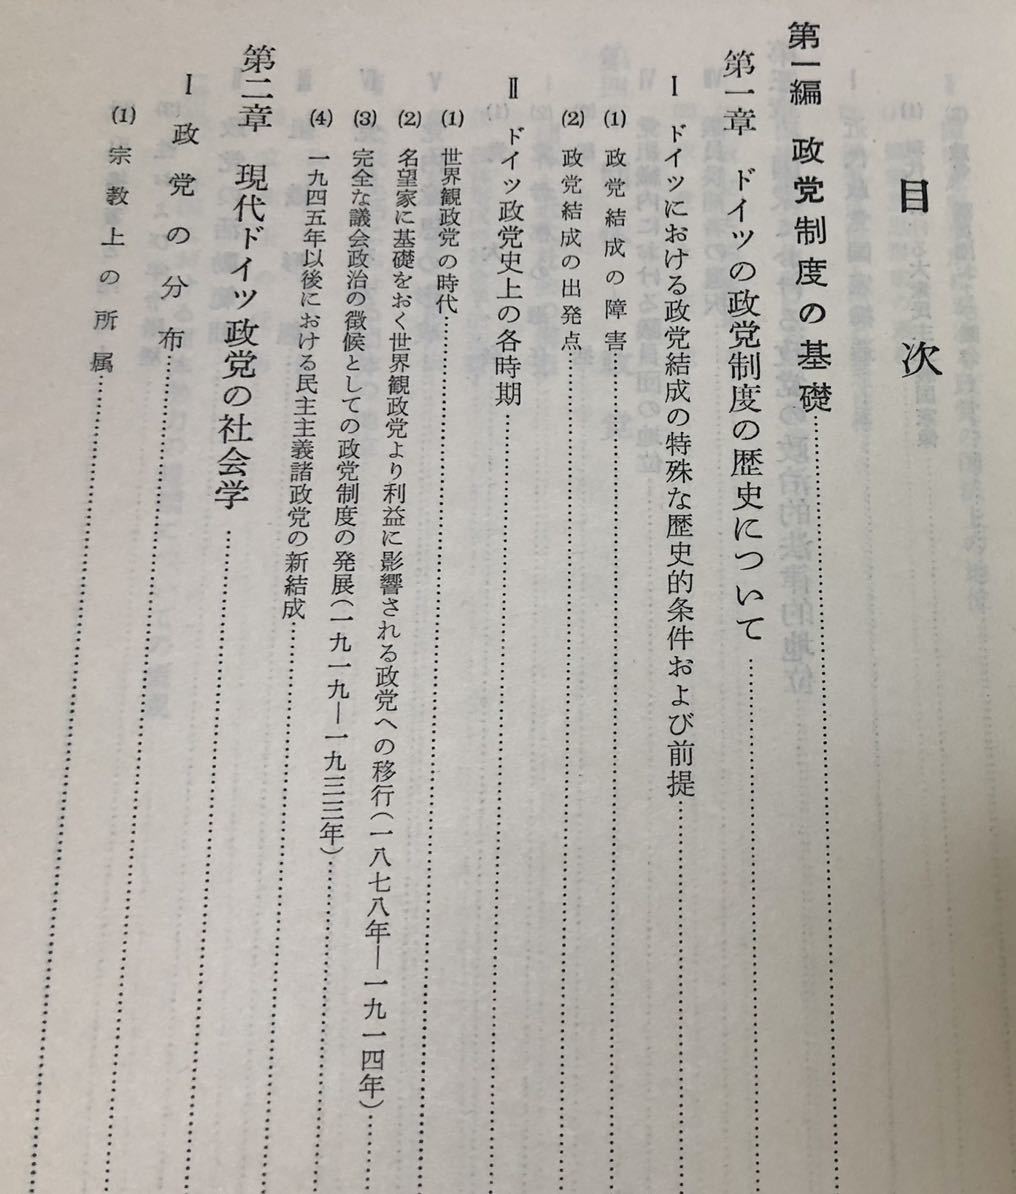 目次
第一編 政党制度の基礎
第一章 ドイツの政党制度の歴史について
Ⅰ ドイツにおける政党結成の特殊な歴史的条件および前提
(1) 政党結成の障害
(2) 政党結成の出発点
Ⅱ ドイツ政党史上の各時期
(1) 世界観政党の時代
(2) 名望家に基礎をおく世界観政党より利益に影響される政党への移行(一八七八年―一九一四年)
(3) 完全な議会政治の徴候としての政党制度の発展(一九一九―一九三三年)
(4) 一九四五年以後における民主主義諸政党の新結成
第二章 現代ドイツ政党の社会学
Ⅰ 政党の分布
(1) 宗教上の所属